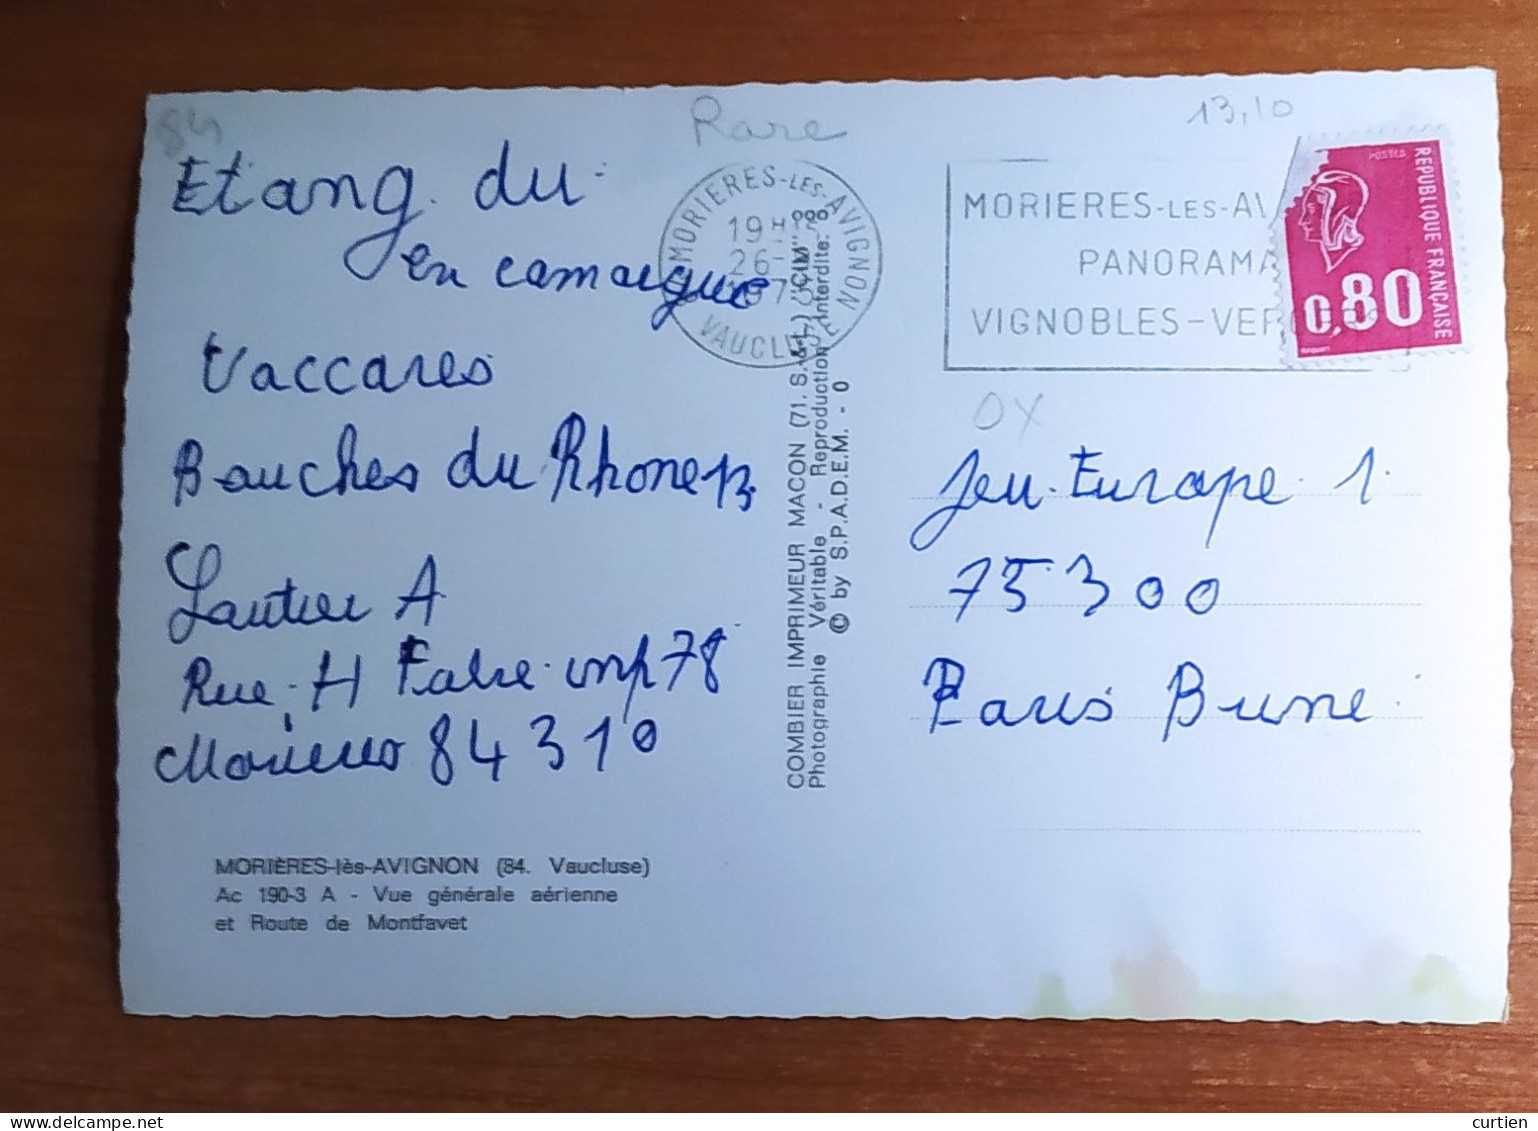 84
Rare
13,10
Etang du
en camargue
Vaccares
Bouches du Rhone 13.
Lautier A
Rue H Fabre imp 78
Morieres 84310
MORIÈRES-lès-AVIGNON (84. Vaucluse)
Ac 190-3 A - Vue générale aérienne
et Route de Montfavet
MORIERES-LES-AVIGNON
19H
26-
VAUCLUSE
COMBIER IMPRIMEUR MACON (71. S.-&-L.) "CIM"
Photographie Véritable - Reproduction Interdite.
© by S.P.A.D.E.M. - O
MORIERES-LES-AV
PANORAMA
VIGNOBLES-VER
POSTES
REPUBLIQUE FRANÇAISE
0,80
OX
Jeu Europe 1.
75300
Paris Brune
curtien